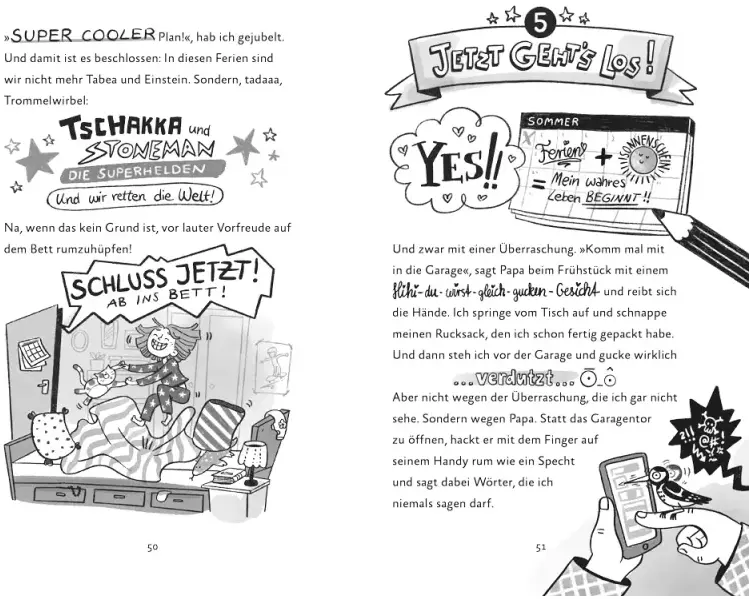 »SUPER COOLER Plan!«, hab ich gejubelt.
Und damit ist es beschlossen: In diesen Ferien sind
wir nicht mehr Tabea und Einstein. Sondern, tadaaa,
Trommelwirbel:
TSCHAKKA und
STONEMAN
DIE SUPERHELDEN
Und wir retten die Welt!
Na, wenn das kein Grund ist, vor lauter Vorfreude auf
dem Bett rumzuhüpfen!
SCHLUSS JETZT!
AB INS BETT!
50
5
JETZT GEHT'S LOS!
YES!!
SOMMER
Ferien + SONNENSCHEIN
= Mein wahres
Leben BEGINNT!!
Und zwar mit einer Überraschung. »Komm mal mit
in die Garage«, sagt Papa beim Frühstück mit einem
Hihi-du-wirst-gleich-gucken-Gesicht und reibt sich
die Hände. Ich springe vom Tisch auf und schnappe
meinen Rucksack, den ich schon fertig gepackt habe.
Und dann steh ich vor der Garage und gucke wirklich
...verdutzt... Ō_ô
Aber nicht wegen der Überraschung, die ich gar nicht
sehe. Sondern wegen Papa. Statt das Garagentor
zu öffnen, hackt er mit dem Finger auf
seinem Handy rum wie ein Specht
und sagt dabei Wörter, die ich
niemals sagen darf.
51